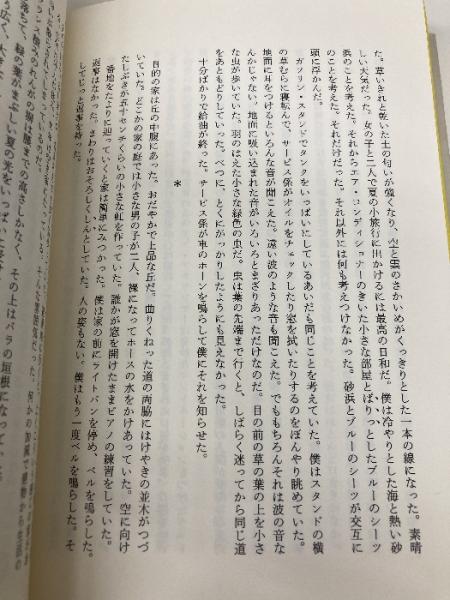 た。草いきれと乾いた土の匂いが強くなり、空と雲のさかいめがくっきりとした一本の線になった。素晴
しい天気だった。女の子と二人で夏の小旅行に出かけるには最高の日和だ。僕は冷やりとした海と熱い砂
浜のことを考えた。それからエア・コンディショナーのきいた小さな部屋とぱりっとしたブルーのシーツ
のことを考えた。それだけだった。それ以外には何も考えつけなかった。砂浜とブルーのシーツが交互に
頭に浮かんだ。
ガソリン・スタンドでタンクをいっぱいにしているあいだも同じことを考えていた。僕はスタンドの横
の草むらに寝転んで、サービス係がオイルをチェックしたり窓を拭いたりするのをぼんやり眺めていた。
地面に耳をつけるといろんな音が聞こえた。遠い波のような音も聞こえた。でももちろんそれは波の音な
んかじゃない。地面に吸い込まれた音がいろいろとまざりあっただけなのだ。目の前の草の葉の上を小さ
な虫が歩いていた。羽のはえた小さな緑色の虫だ。虫は葉の先端まで行くと、しばらく迷ってから同じ道
をあともどりしていった。べつに、とくにがっかりしたようにも見えなかった。
十分ばかりで給油が終った。サービス係が車のホーンを鳴らして僕にそれを知らせた。
*
目的の家は丘の中腹にあった。おだやかで上品な丘だ。曲りくねった道の両脇にはけやきの並木がつづ
いていた。どこかの家の庭では小さな男の子が二人、裸になってホースの水をかけあっていた。空に向け
たしぶきが五十センチくらいの小さな虹を作っていた。誰かが窓を開けたままピアノの練習をしていた。
番地をたよりに辿っていくと家は簡単にみつかった。僕は家の前にライトバンを停め、ベルを鳴らした。
返事はなかった。まわりはおそろしくしんとしていた。人の姿もない。僕はもう一度ベルを鳴らした。そ
してじっと返事を待った。